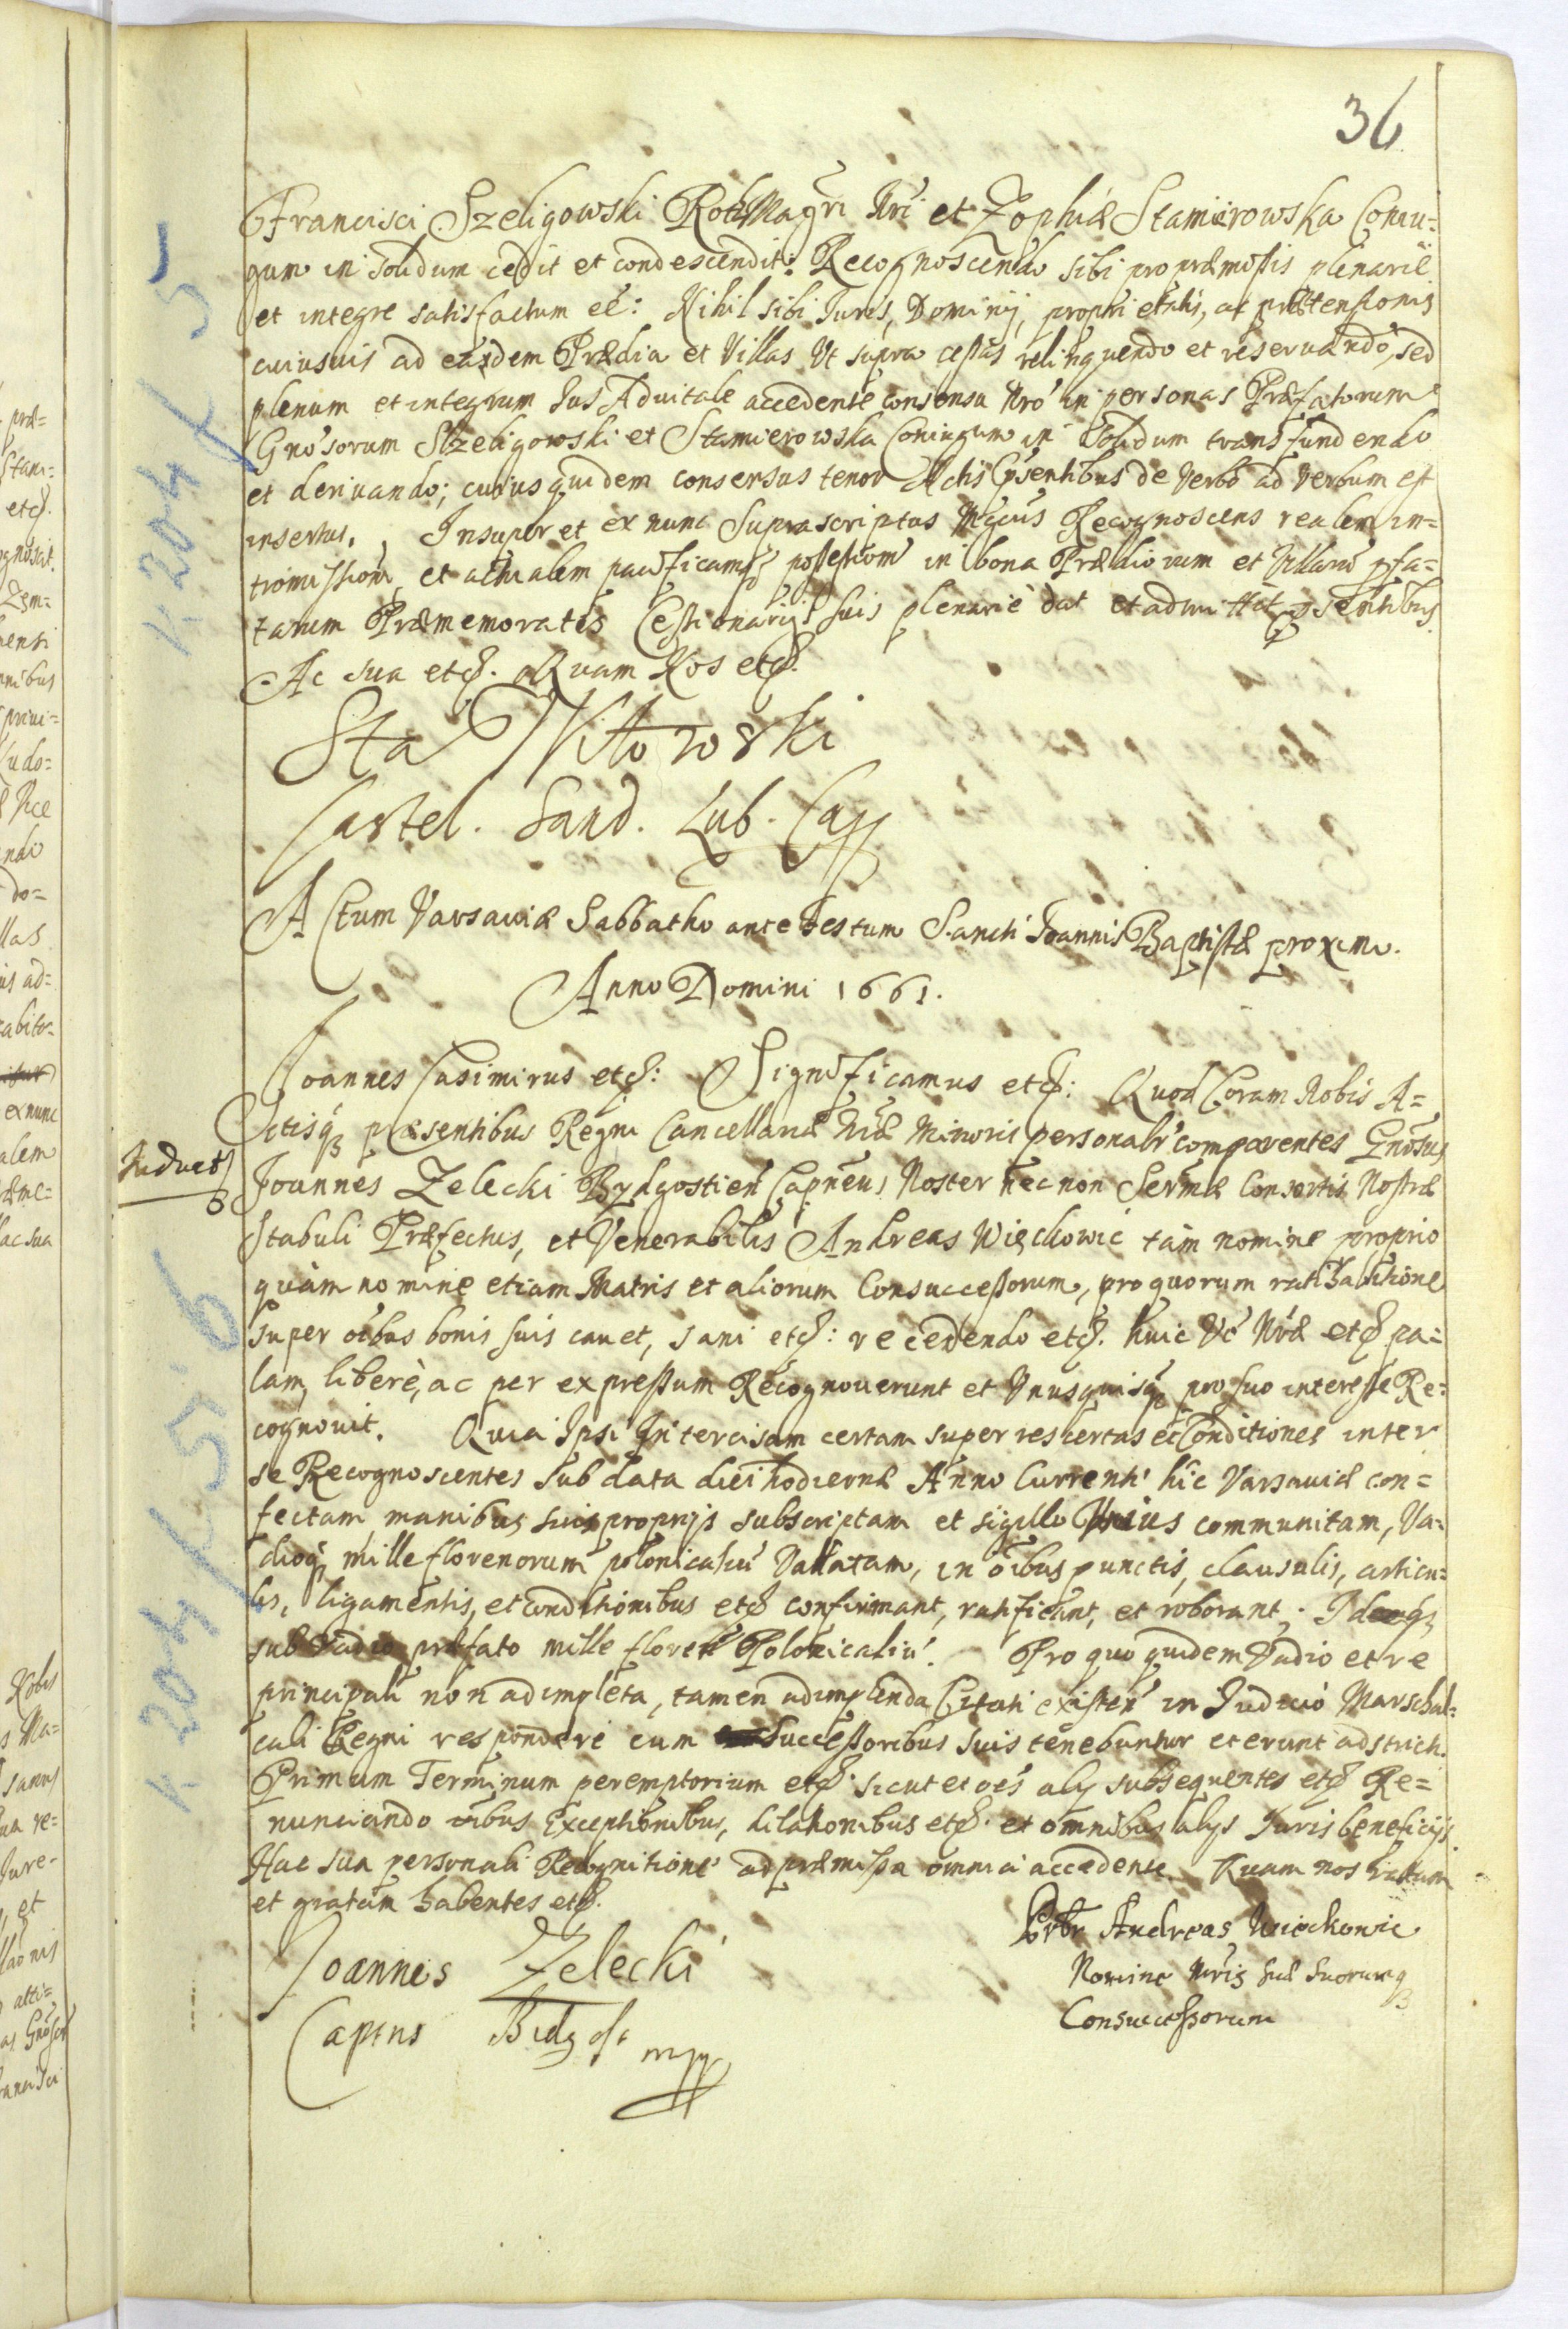 36
Francisci Szeligowski RotMagri Nri et Zophiæ Stamierowska Coniu=
gum in solidum cedit et condescendit: Recognoscendo sibi pro præmissis plenarie
et integre satisfactum eē: Nihil sibi Iuris, Dominij, proprietatis, ac prætensionis
cuiusuis ad easdem Prædia et Villas Vt supra cessas relinquendo et reseruando, sed
plenum et integrum Ius Aduitale accedente consensu Nro in personas Præfatorum
Gnosorum Szeligowski et Stamierowska Coniugum in solidum transfundendo
et deriuando; cuius quidem consensus tenor Actis psentibus de Verbo ad Verbum est
insertus. Insuper et ex nunc Suprascriptus Mgcus Recognoscens realem in=
tromissionē et actualem pacificamq; possessionē in bona Prædiorum et Villarū pfa=
tarum Præmemoratis Cessionarijs suis plenarie dat et admittit psentibus.
Ac sua etc. Quam Nos etc.
Sta Witowski
Castel. Sand. Lub. Capp
Actum Varsauiæ Sabbatho ante festum Sancti Joannis Baptistæ proximo.
Anno Domini 1661.
Joannes Casimirus etc: Significamus etc: Quod Coram Nobis A=
ctisq; præsentibus Regni Cancellariæ Nræ Minoris personalr comparentes Gnosus
Joannes Zelecki Bydgostien Capneus Noster necnon Sermæ Consortis Nostræ
Stabuli Præfectus, et Venerabilis Andreas Więckowic tam nomine proprio
quàm nomine etiam Matris et aliorum Consuccessorum, pro quorum ratihabitione
super oībus bonis suis cauet, sani etc: recedendo etc. huic Vē Nræ etc pa=
lam, liberè, ac per expressum Recognouerunt et Vnusquisq; pro suo interesse Re=
cognouit. Quia Ipsi Intercisam certam super res certas et Conditiones inter
se Recognoscentes sub data diei hodiernæ Anno Currenti hic Varsauiæ con=
fectam, manibus suis proprijs subscriptam et sigillo communitam, Va=
dioq; mille florenorum polonicaliū Vallatam, in oībus punctis, clausulis, articu=
lis, ligamentis, et conditionibus etc confirmant, ratificant, et roborant; Idq;
sub vadio præfato mille floren Polonicaliū. Pro quo quidem Vadio et re
principali non adimpleta, tamen adimplenda Citati existen in Iudicio Marschal=
cali Regni respondere cum Successoribus suis tenebuntur et erunt adstricti.
Primum Terminum peremptorium etc. sicut et oēs alij subsequentes etc Re=
nunciando oībus Exceptionibus, dilationibus etc. et omnibus alijs Iuris beneficijs
Hac sua personali Recognitione ad præmissa omnia accedente. Quam nos ratam
et gratam habentes etc.
Joannes Zelecki
Capnus Bidgos mpp
Prbr Andreas Wieckowic
Nomine Mris suæ suorumq;
Consuccessorum
K 204 f 5
K 204 f 5 6